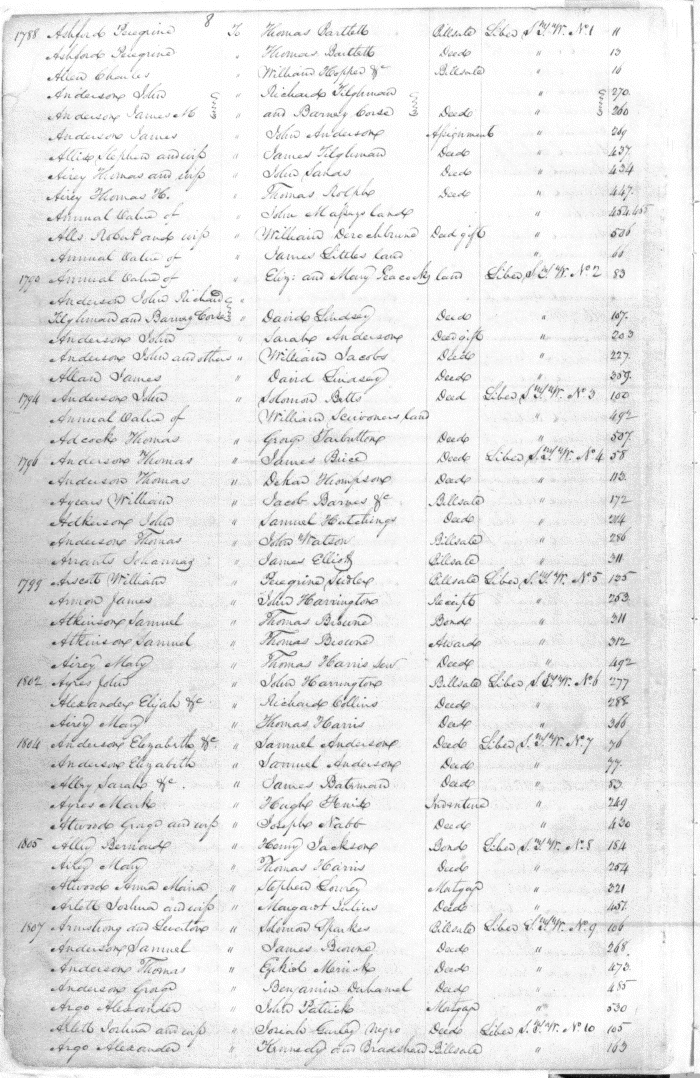 8
1788 Ashford Peregrine To Thomas Bartlett Billsale Liber S.T.W. No 1 11
Ashford Peregrine " Thomas Bartlett Deed " 13
Allen Charles " William Hopper &c Billsale " 16
Anderson John " Richard Tilghman " 270
Anderson James M " and Barney Corse Deed " 260
Anderson James " John Anderson Assignment " 269
Allis Stephen and wife " James Tilghman Deed " 437
Airey Thomas and wife " John Sands Deed " 434
Airey Thomas H. " Thomas Rolph Deed " 447
Annual Value of " John Masseys land " 454 455
Alls Robert and wife " William Derochbrune Deed gift " 536
Annual Value of " James Littles land " 66
1793 Annual Value of " Eliz: and Mary Peacocks land Liber S.T.W. No 2 83
Anderson John Richard " "
Tilghman and Barney Corse " David Lindsey Deed " 167
Anderson John " Sarah Anderson Deed gift " 203
Anderson John and others " William Jacobs Deed " 227
Allan James " David Lindsey Deed " 359
1794 Anderson John " Solomon Betts Deed Liber S.T.W. No 3 100
Annual Value of " William Scrivoners land " 492
Adcock Thomas " George Tarbutton Deed " 537
1796 Anderson Thomas " James Brice Deed Liber S.T.W. No 4 58
Anderson Thomas " Dekar Thompson Deed " 113
Ayears William " Jacob Barnes &c Billsale " 172
Adkerson John " Samuel Hutchings Deed " 214
Anderson Thomas " John Watson Billsale " 286
Arrants Johannas " James Elliott Billsale " 311
1799 Arscott William " Peregrine Sudler Billsale Liber S.T.W. No 5 135
Armon James " John Harrington Receipt " 253
Atkinson Samuel " Thomas Browne Bond " 311
Atkinson Samuel " Thomas Browne Award " 312
Airey Mary " Thomas Harris Sen Deed " 492
1802 Ayres John " John Harrington Billsale Liber S.T.W. No 6 277
Alexander Elijah &c " Richard Collins Deed " 288
Airey Mary " Thomas Harris Deed " 366
1804 Anderson Elizabeth &c " Samuel Anderson Deed Liber S.T.W. No 7 76
Anderson Elizabeth " Samuel Anderson Deed " 77
Alby Sarah &c " James Bateman Deed " 83
Ayres Mark " Hugh Ennis Indenture " 249
Atwood George and wife " Joseph Nabb Deed " 430
1805 Allen Bernard " Henry Jackson Bond Liber S.T.W. No 8 184
Airey Mary " Thomas Harris Deed " 254
Atwood Anna Maria " Stephen Lowrey Mortgage " 321
Arlett Joshua and wife " Margaret Julius Deed " 451
1807 Armstrong and " Solomon Sparkes Billsale Liber S.T.W. No 9 106
Anderson Samuel " James Browne Deed " 268
Anderson Thomas " Ezekiel Merrick Deed " 473
Anderson George " Benjamin Duhamel Deed " 485
Argo Alexander " John Patrick Mortgage " 530
Allett Joshua and wife " Josiah Gurley Negro Deed Liber S.T.W. No 10 105
Argo Alexander " Kennedy and Bradshaw Billsale " 163